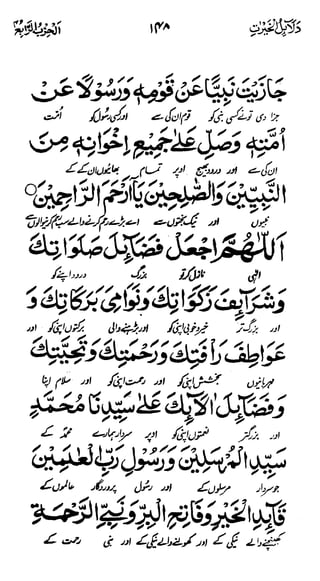 دلائل الخيرات ١٣٨ الحزب الرابع
جَازَيْتَ نَبِيًّا عَنْ قَوْمِهٖ وَرَسُوْلًا عَنْ
جزا دی تونے کسی نبی کو قوم ان کی سے اور کسی رسول کو امت
اُمَّتِهٖ وَصَلِّ عَلٰى جَمِيْعِ اِخْوَانِهٖ مِنَ
ان کی سے اور درود بھیج اوپر تمام بھائیوں ان کے کے
النَّبِيِّيْنَ وَالصّٰلِحِيْنَ يَآ اَرْحَمَ الرَّاحِمِيْنَ
نبیوں اور نیک بختوں سے اے بڑے رحم کرنے والے سب رحم کرنیوالوں سے
اَللّٰهُمَّ اجْعَلْ فَضَآئِلَ صَلَوَاتِكَ
الٰہی نازل کر تو بزرگ درود اپنے کو
وَشَرَآئِفَ زَكَوَاتِكَ وَنَوَامِىَ بَرَكَاتِكَ وَ
اور بزرگ تر خیر و خوبی اپنی کو اور بڑھنے والی برکتوں اپنی کو اور
عَوَاطِفَ رَاْفَتِكَ وَرَحْمَتِكَ وَتَحِيَّتِكَ
مہربانیوں بخشش اپنی کو اور رحمت اپنی کو اور سلام اپنا
وَفَضَآئِلَ اٰلَآئِكَ عَلٰى سَيِّدِنَا مُحَمَّدٍ
اور بزرگتر نعمتوں اپنی کو اوپر سردار ہمارے محمد کے
سَيِّدِ الْمُرْسَلِيْنَ وَرَسُوْلِ رَبِّ الْعٰلَمِيْنَ
جو سردار مرسلوں کے اور رسول پروردگار عالموں کے
قَآئِدِ الْخَيْرِ وَفَاتِحِ الْبِرِّ وَنَبِىِّ الرَّحْمَةِ
کھینچنے والے نیکی کے اور کھولنے والے نیکی کے اور نبی رحمت کے